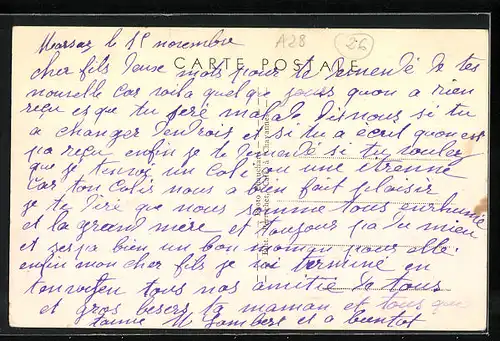 Marsaz le 15 novembre
A28
26
CARTE POSTALE
cher fils deux mots pour te demendé de tes
nouvelle car voila quelque jours quon a rien
reçu es que tu seré malade dis nous si tu
a changer dendroit et si tu a écrit quon est
pa reçu enfin je te demendé si tu voulez
que je tenvoi un coli ou une étrenne
car ton colis nous a bien fait plaisir
je te diré que nous somme tous enrhumé
et la grand mère et toujour pa du mieu
et ses pa bien un bon moment pour elle.
enfin mon cher fils je vai terminé en
tenvoyen tous nos amitié de tous
et gros besers ta maman et tous que
taime M Gambert et a bientot